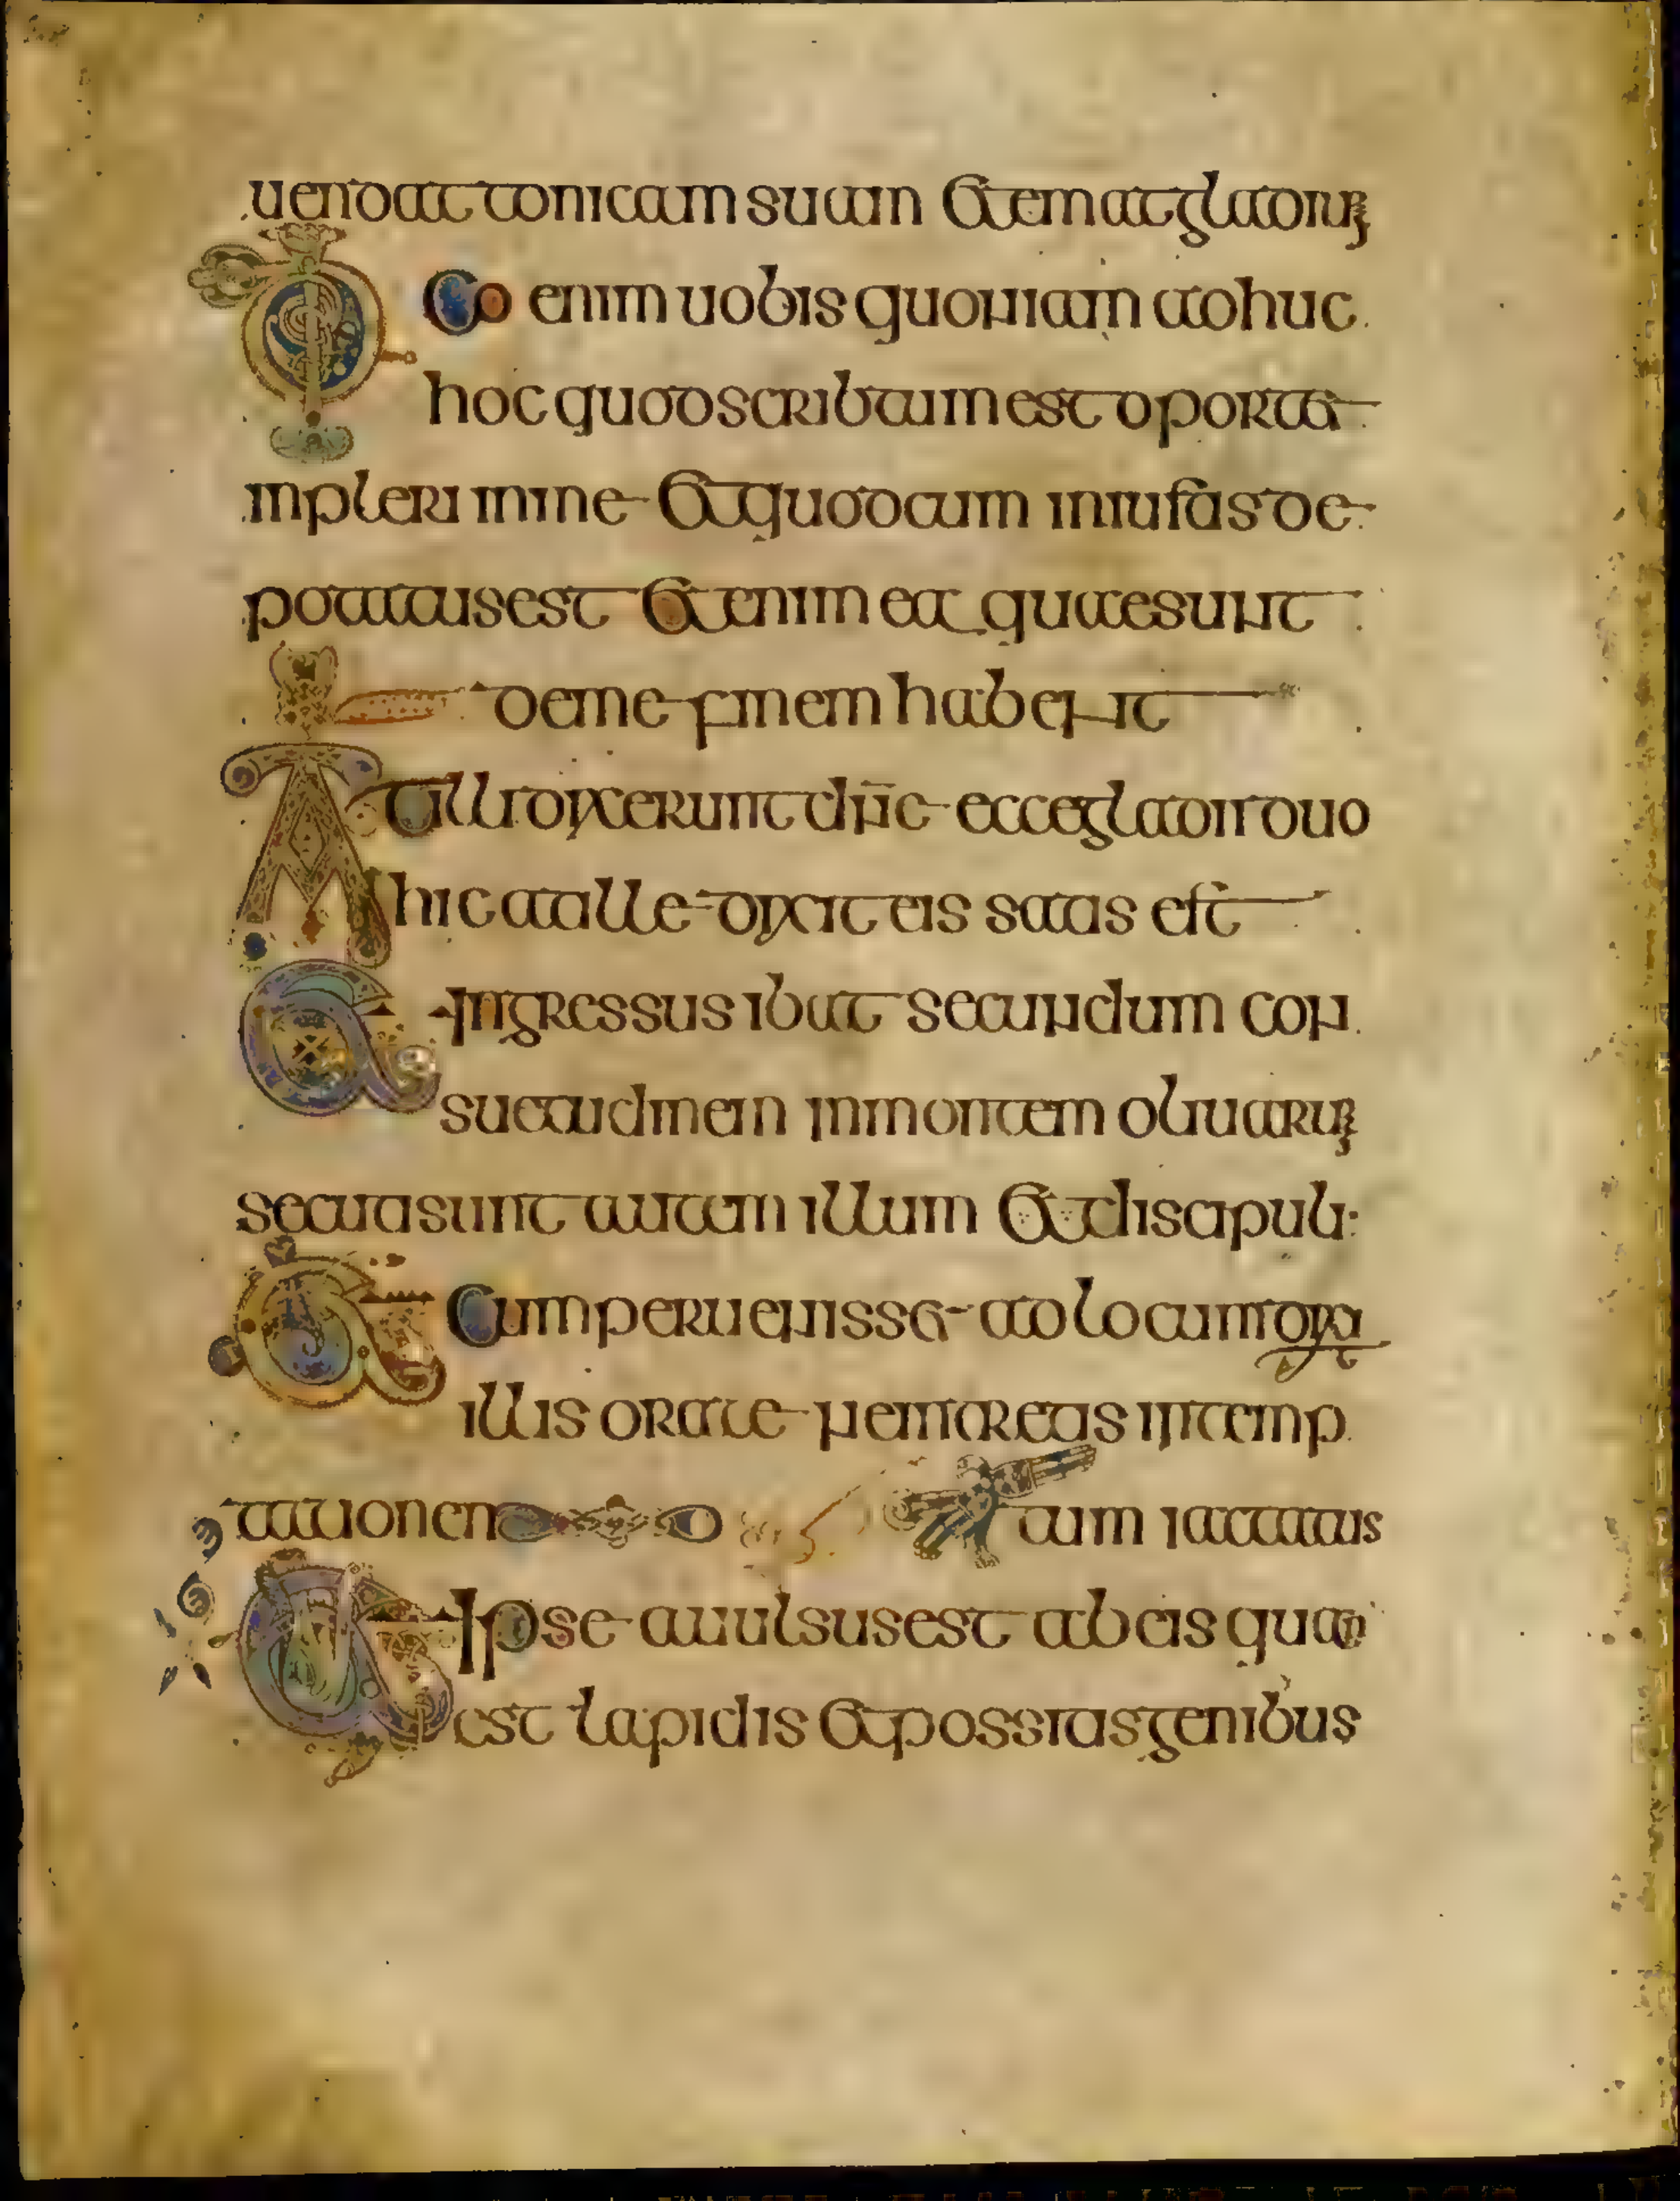 uendat tonicam suam et emat gladium
Dico enim uobis quoniam adhuc
hoc quod scribtum est oportet
inpleri in me et quod cum iniustis de
potatus est et enim ea quae sunt
de me finem habent
At illi dixerunt dn̄e ecce gladii duo
hic at ille dixit eis satis est
Et ingressus ibat secundum con
suetudinem in montem oliuarum
secuti sunt autem illum et discipuli
Et cum peruenisset ad locum dixit
illis orate ne intretis in temp
tationem
tum iactatus
Et ipse auulsus est ab eis quan
est lapidis et possitis genibus